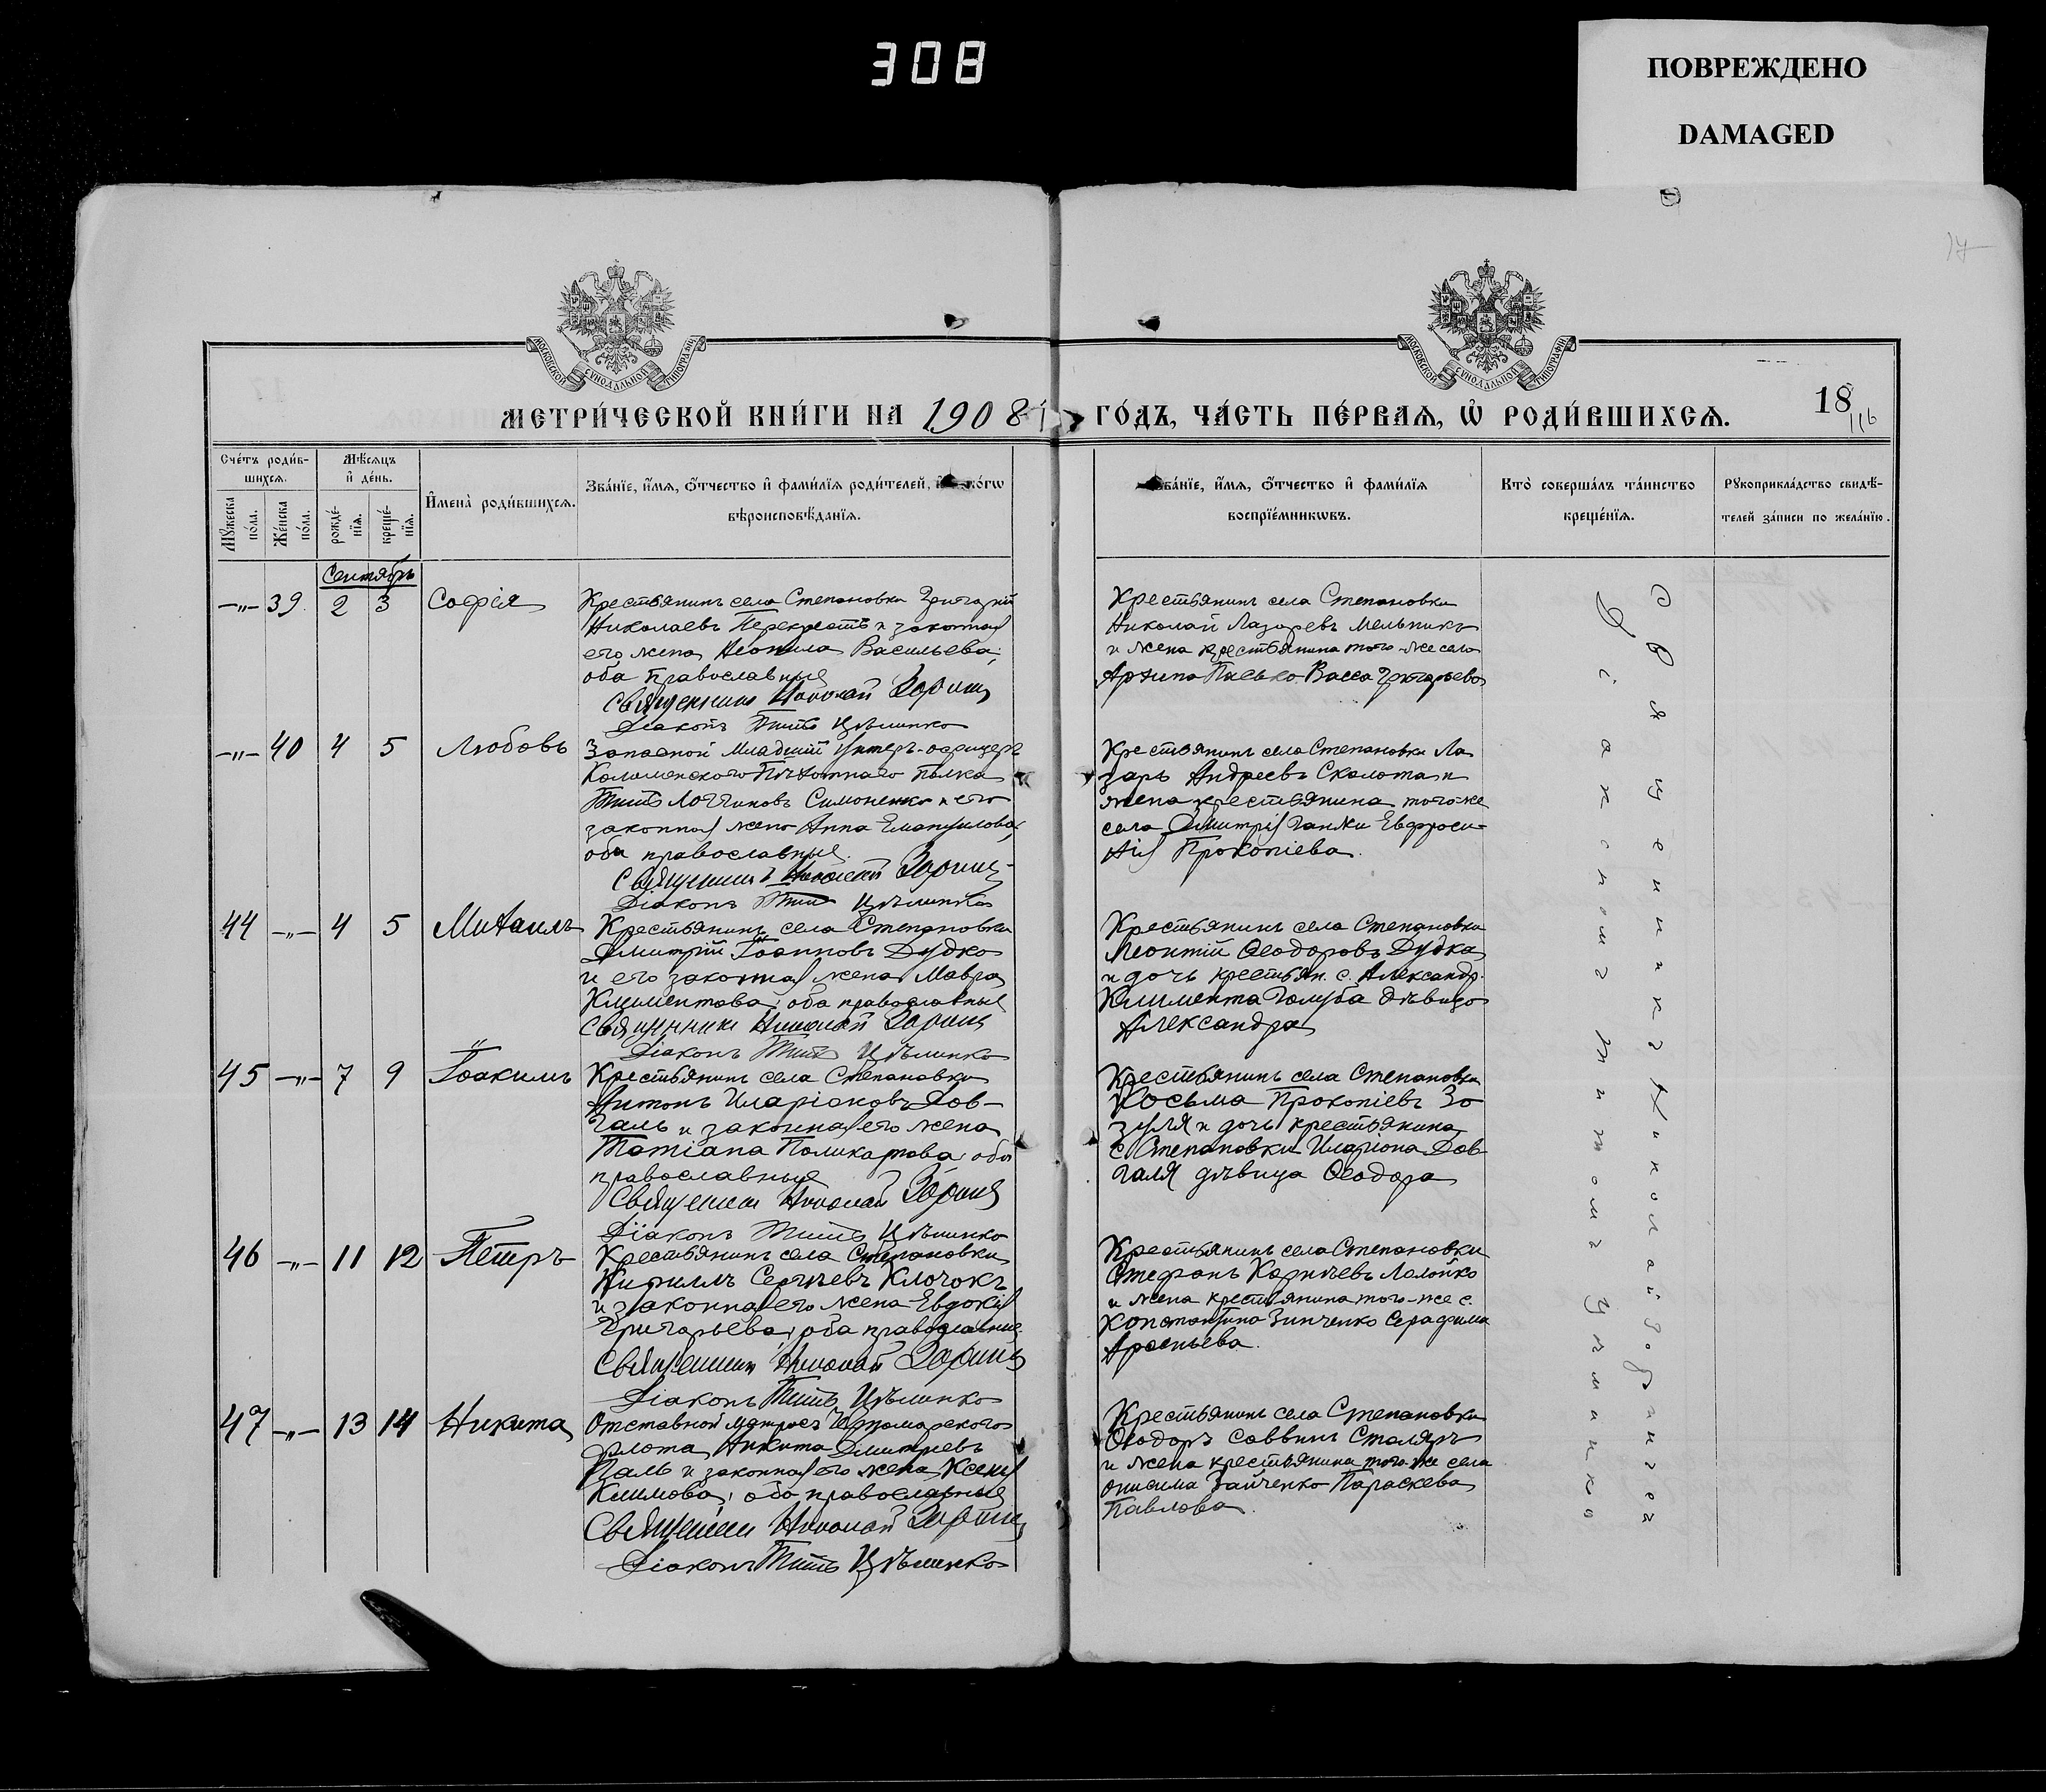 308
ПОВРЕЖДЕНО
DAMAGED
МОСКОВСКОЙ СУНОДАЛЬНОЙ ТИПОГРАФІИ
МОСКОВСКОЙ СУНОДАЛЬНОЙ ТИПОГРАФІИ
МЕТРИ́ЧЕСКОЙ КНИ́ГИ НА 1908 ГО́ДЪ, ЧА́СТЬ ПЕ́РВАЯ, Ѡ҆ РОДИ́ВШИХСЯ.
18
116
Сче́тъ роди́в-
шихся.
Мѣ́сяцъ
и҆ де́нь.
Мꙋ́жеска по́ла.
Же́нска по́ла.
рожде́-нїя.
креще́-нїя.
И҆мена̀ роди́вшихся.
Зва́нїе, и҆́мя, ѻ҆́тчество и҆ фами́лїя роди́телей,
вѣроисповѣ́данїя.
Зва́нїе, и҆́мя, ѻ҆́тчество и҆ фами́лїя
воспрїе́мникѡвъ.
Кто̀ соверша́лъ та́инство
креще́нїя.
Рꙋкоприкла́дство свидѣ́-
телей за́писи по жела́нїю.
Сентябрь
-"- 39. 2 3 Софія
Крестьянинъ села Степановки Григорій
Николаевъ Перекрестъ и законная
его жена Неонила Васильева,
оба православные
Священникъ Николай Зоринъ
Діаконъ Титъ Цѣлинко
Крестьянинъ села Степановки
Николай Лазаревъ Мельникъ
и жена крестьянина того-же села
Архипа Пасько Васса Григорьева
-"- 40 4 5 Любовь
Запасной младшій унтеръ-офицеръ
Коломенского Пѣхотнаго полка
Титъ Логгиновъ Симоненко и его
законная жена Анна Емануилова,
оба православные.
Священникъ Николай Зоринъ
Діаконъ Титъ Цѣлинко
Крестьянинъ села Степановки Ла
зарь Андреевъ Сколота и
жена крестьянина того-же
села Димитрія Ганжи Евфроси-
нія Прокопіева.
44 -"- 4 5 Михаилъ
Крестьянинъ села Степановки
Димитрій Іоанновъ Дудко
и его законная жена Мавра
Климентова, оба православные
Священникъ Николай Зоринъ
Діаконъ Титъ Цѣлинко
Крестьянинъ села Степановки
Леонтій Ѳеодоровъ Дудка
и дочь крестьян. с. Александр.
Климента Голуба дѣвица
Александра
45 -"- 7 9 Іоакимъ
Крестьянинъ села Степановки
Антонъ Иларіоновъ Дов-
галь и законная его жена
Татіана Поликарпова, оба
православные
Священникъ Николай Зоринъ
Діаконъ Титъ Цѣлинко
Крестьянинъ села Степановки
Косьма Прокопіевъ Зо
зуля и дочь крестьянина
с. Степановки Иларіона Дов
галя дѣвица Ѳеодора
46 -"- 11 12 Петръ
Крестьянинъ села Степановки
Кириллъ Сергѣевъ Клочокъ
и законная его жена Евдокія
Григорьева, оба православные.
Священникъ Николай Зоринъ
Діаконъ Титъ Цѣлинко
Крестьянинъ села Степановки
Стефанъ Лолойко
и жена крестьянина того-же с.
Константина Зинченко Серафима
Арсеньева.
47 -"- 13 14 Никита
Отставной матросъ Черноморскаго
флота Никита Димитріевъ
Галь и законная его жена Ксенія
Климова, оба православные
Священникъ Николай Зоринъ
Діаконъ Титъ Цѣлинко
Крестьянинъ села Степановки
Ѳеодоръ Саввинъ Столяръ
и жена крестьянина того же села
Онисима Зайченко Параскева
Павлова.
Священникъ Николай Зоринъ съ
Діакономъ Титомъ